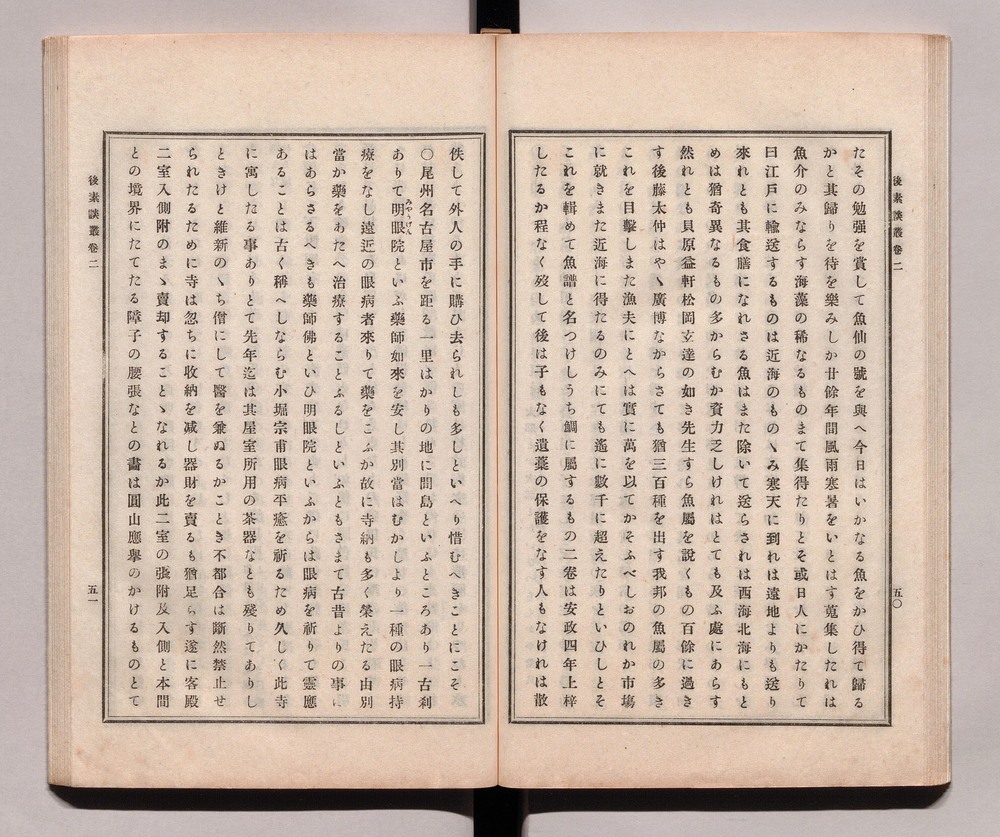 後素談叢卷二
五〇
たその勉强を賞して魚仙の號を與へ今日はいかなる魚をかひ得て歸る
かと其歸りを待を樂みしか廿餘年間風雨寒暑をいとはす蒐集したれは
魚介のみならす海藻の稀なるものまて集得たりとそ或日人にかたりて
曰江戸に輸送するものは近海のものゝみ寒天に到れは遠地よりも送り
來れとも其食膳になれさる魚はまた除いて送らされは西海北海にもと
めは猶奇異なるもの多からむか資力乏しけれはとても及ふ處にあらす
然れとも貝原益軒松岡玄達の如き先生すら魚屬を說くもの百餘に過き
す後藤太仲はやゝ廣博なからさても猶三百種を出す我邦の魚屬の多き
これを目擊しまた漁夫にとへは實に萬を以てかそふべしおのれか市塲
に就きまた近海に得たるのみにても遙に數千に超えたりといひしとそ
これを輯めて魚譜と名つけしうち鯛に屬するもの二卷は安政四年上梓
したるか程なく歿して後は子もなく遺藁の保護をなす人もなけれは散
佚して外人の手に購ひ去られしも多しといへり惜むへきことにこそ
〇尾州名古屋市を距る一里はかりの地に間島といふところあり一古刹
ありて明眼院といふ藥師如來を安し其別當はむかしより一種の眼病持
みやうげん
療をなし遠近の眼病者來りて藥をこふか故に寺納も多く榮えたる由別
當か藥をあたへ治療することふるしといふともさまて古昔よりの事に
はあらさるへきも藥師佛といひ明眼院といふからは眼病を祈りて靈應
あることは古く稱へしならむ小堀宗甫眼病平癒を祈るため久しく此寺
に寓したる事ありとて先年迄は其屋室所用の茶器なとも殘りてありし
ときけと維新のゝち僧にして醫を兼ぬるかことき不都合は斷然禁止せ
られたるために寺は忽ちに收納を减し器財を賣るも猶足らす遂に客殿
二室入側附のまゝ賣却することゝなれるか此二室の張附及入側と本間
との境界にたてたる障子の腰張なとの畵は圓山應擧のかけるものとて
後素談叢卷二
五一